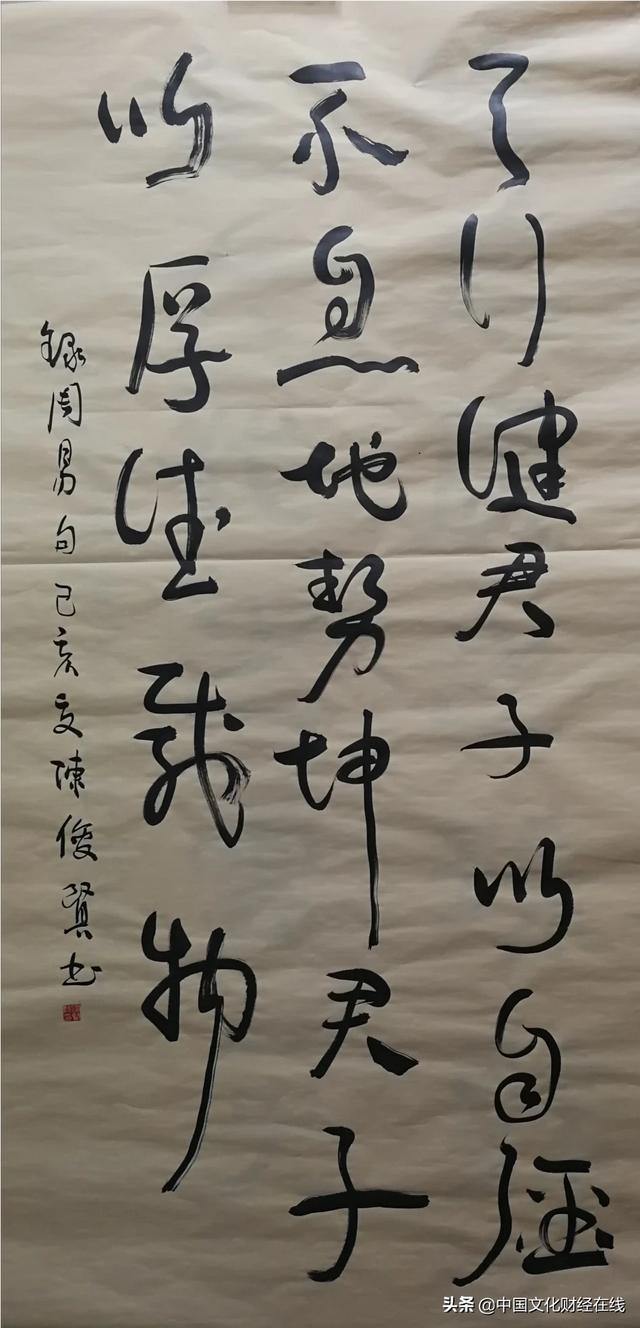 天行健君子以自强
不息地势坤君子
以厚德载物
録周易句己亥文陳俊賢书
头条 @中国文化财经在线